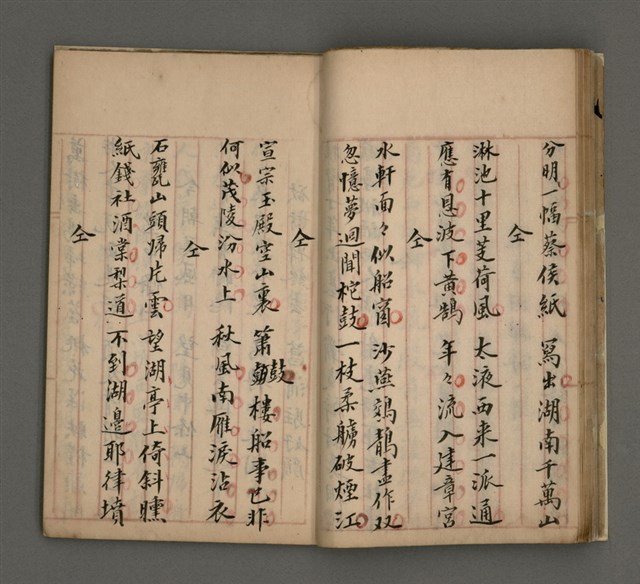 分明一幅蔡侯紙　寫出湖南千萬山
仝
淋池十里芰荷風　太液西來一派通
應有恩波下黃鵠　年々流入建章宮
仝
水軒面々似船窗　沙燕鵁鶄盡作双
忽憶夢迴聞柁鼓　一枝柔艣破煙江
仝
宣宗玉殿空山裏　簫鼓樓船事已非
何似茂陵汾水上　秋風南雁淚沾衣
仝
石甕山頭歸片雲　望湖亭上倚斜曛
紙錢社酒棠梨道　不到湖邊耶律墳
仝